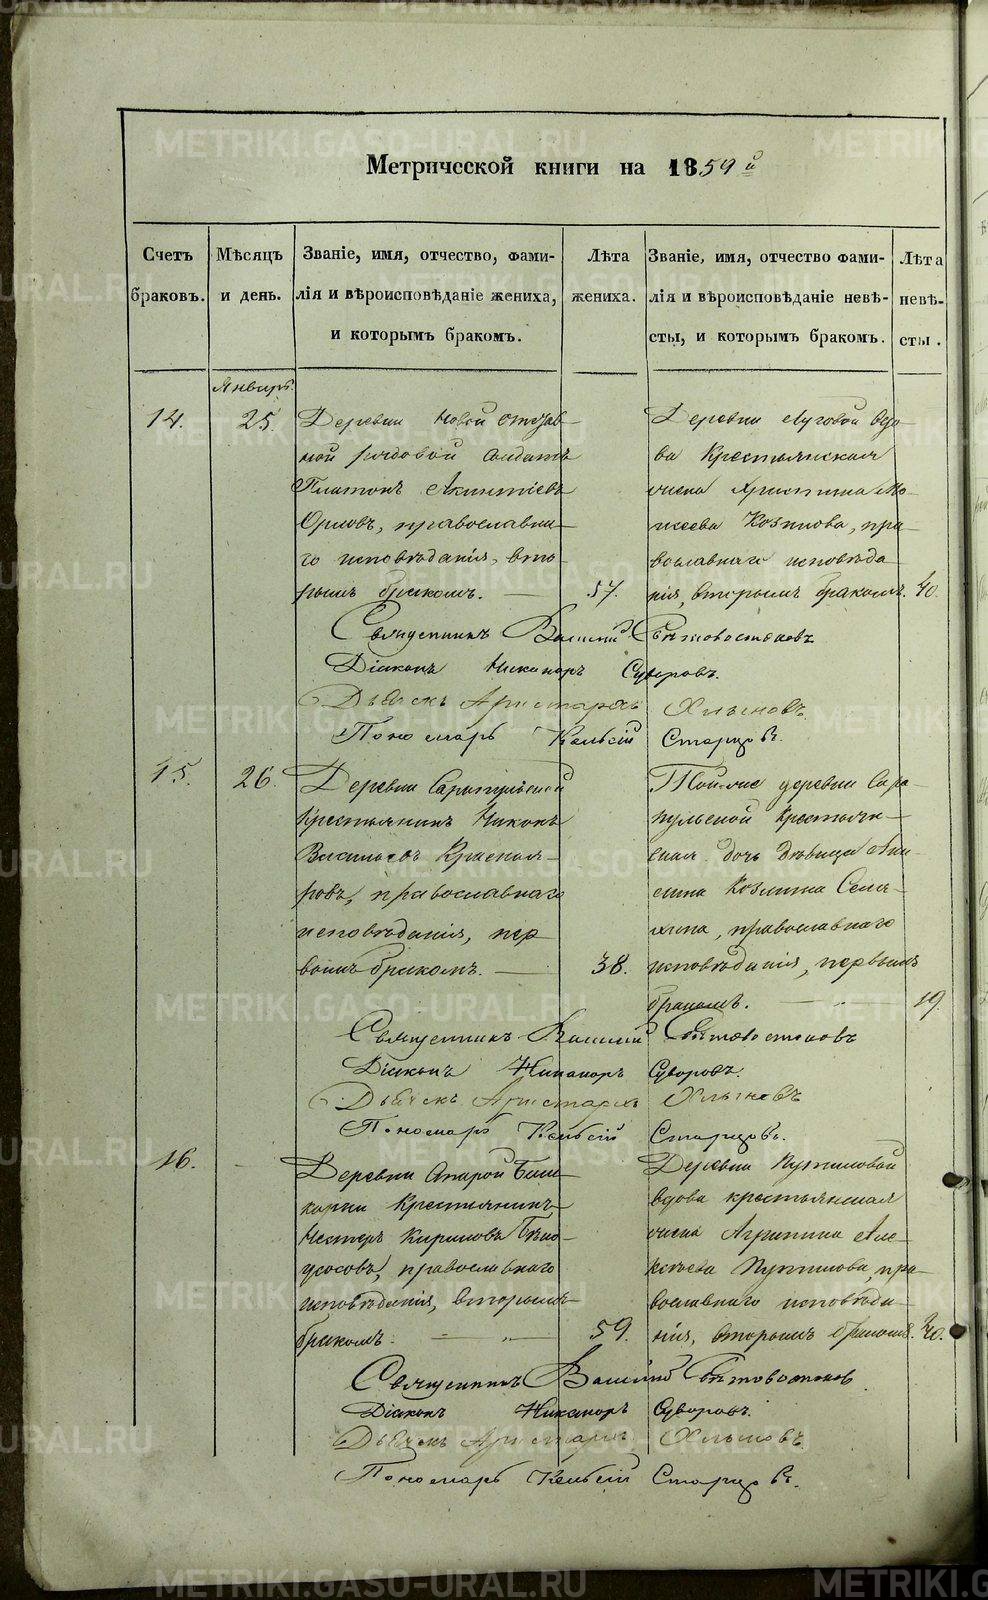 METRIKI.GASO-URAL.RU
Метрической книги на 1859й
Счетъ браковъ.
Мѣсяцъ и день.
Званіе, имя, отчество, фами-
лія и вѣроисповѣданіе жениха,
и которымъ бракомъ.
Лѣта жениха.
Званіе, имя, отчество фами-
лія и вѣроисповѣданіе невѣ-
сты, и которымъ бракомъ.
Лѣта невѣ-
сты.
Январь.
14.
25.
Деревни Новой отстав-
ной рядовой солдатъ
Платонъ Акинтіевъ
Орловъ, православна-
го исповѣданія, вто-
рымъ бракомъ. —
57.
Деревни Луговой вдо-
ва Крестьянская
жена Христина Мо-
исеева Козлова, пра-
вославнаго исповѣда
нія, вторымъ бракомъ.
40.
Священникъ Василій
Діаконъ Никаноръ Суворовъ.
Дьячекъ Аристархъ Хлыновъ
Пономарь Старцовъ.
15.
26.
Деревни
Крестьянинъ Никонъ
Васильевъ Краснояр-
ровъ, православнаго
исповѣданія, пер
вымъ бракомъ. —
38.
Той-же деревни Сара-
пульской Крестьян-
ская дочь Дѣвица Ани-
сина Козмина Сема-
хина, православнаго
исповѣданія, первымъ
бракомъ. —
19.
Священникъ Василій
Діаконъ Никаноръ Суворовъ.
Дьячекъ Аристархъ Хлыновъ
Пономарь Старцовъ.
16.
—
Деревни Старой Баш-
карки Крестьянинъ
Нестеръ Кириловъ Бѣло-
усовъ, православнаго
исповѣданія, вторымъ
бракомъ. — „ —
59.
Деревни Путиловой
вдова крестьянская
жена Агрипина Але-
ксѣева Путилова, пра-
вославнаго исповѣда-
нія, вторымъ бракомъ.
40.
Священникъ Василій
Діаконъ Никаноръ Суворовъ.
Дьячекъ Аристархъ Хлыновъ
Пономарь Старцовъ.